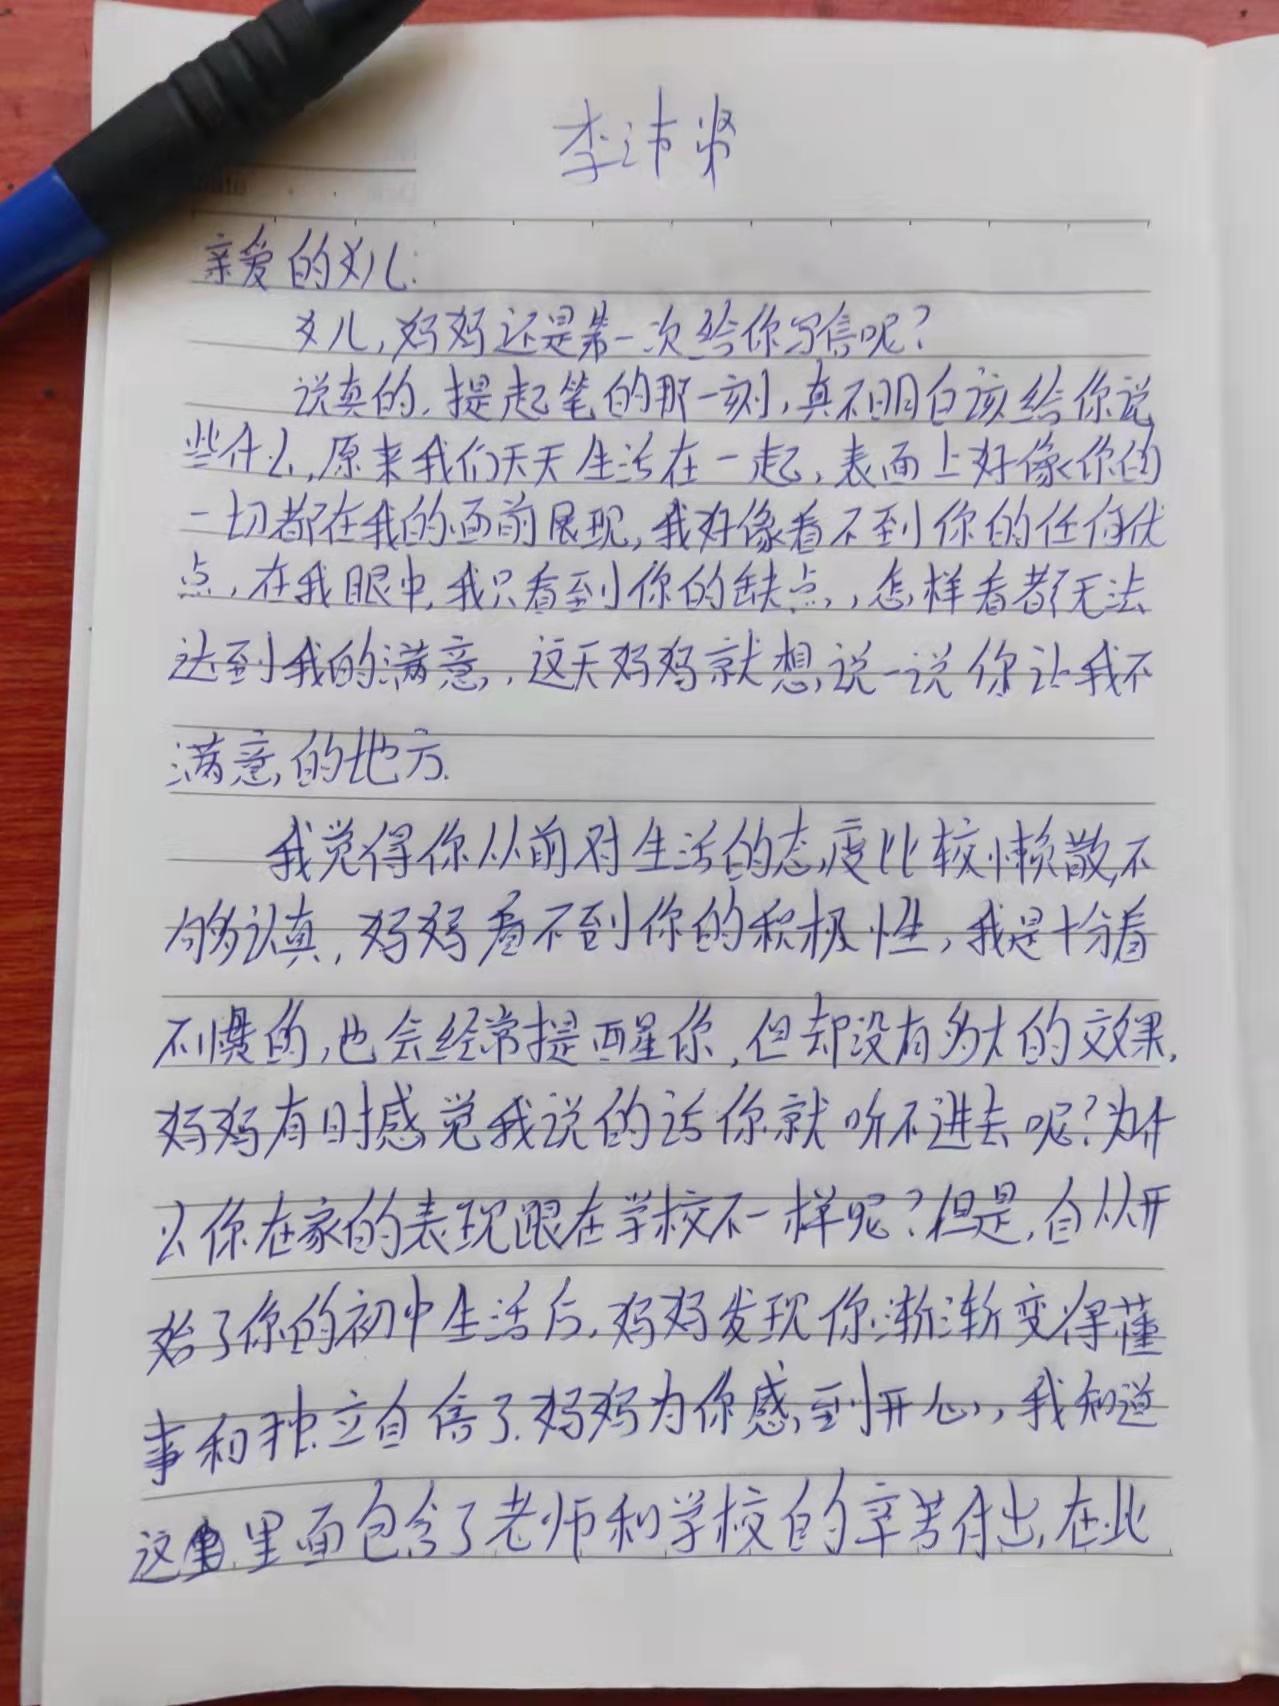 李沛
亲爱的女儿:
女儿,妈妈还是第一次给你写信呢?
说真的,提起笔的那一刻,真不明白该给你说
些什么,原来我们天天生活在一起,表面上好像你的
一切都在我的面前展现,我好像看不到你的任何优
点,在我眼中,我只看到你的缺点,,怎样看都无法
达到我的满意,这天妈妈就想说一说你让我不
满意的地方.
我觉得你从前对生活的态度比较懒散,不
够认真,妈妈看不到你的积极性,我是十分看
不惯的,也会经常提醒你,但却没有多大的效果,
妈妈有时感觉我说的话你就听不进去呢?为什
么你在家的表现跟在学校不一样呢?但是,自从开
始了你的初中生活后,妈妈发现你渐渐变得懂
事和独立自信了.妈妈为你感到开心,我知道
这里面包含了老师和学校的辛苦付出,在此